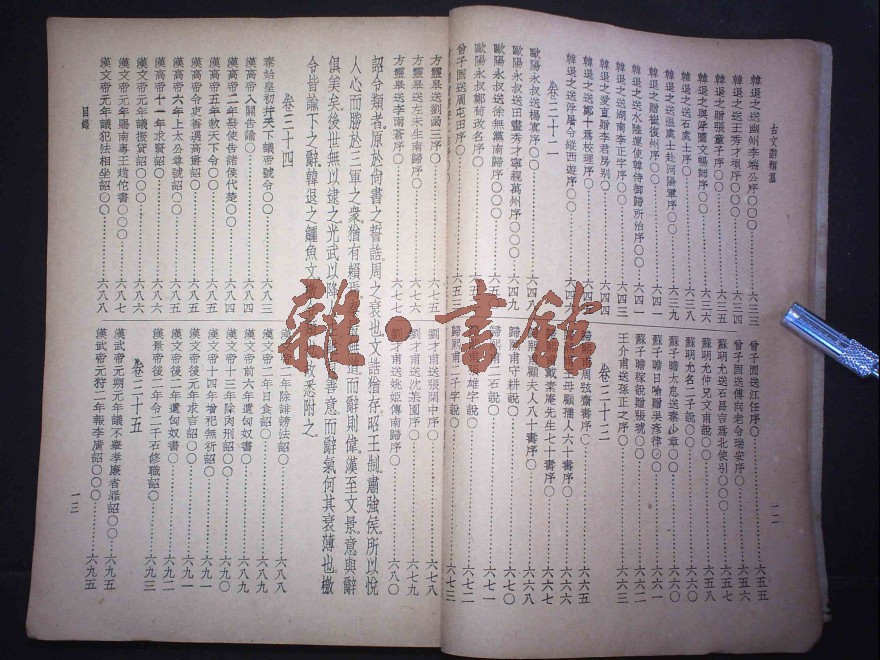 古文辭類纂
韓退之送幽州李端公序〇〇〇……六三三
韓退之送王秀才塤序〇〇〇……六三四
韓退之贈張童子序〇〇……六三五
韓退之與浮圖文暢師序〇〇……六三六
韓退之送石處士序〇〇……六三八
韓退之送溫處士赴河陽軍序〇〇……六三九
韓退之贈崔復州序〇〇……六四一
韓退之送水陸運使韓侍御歸所治序〇〇……六四二
韓退之送湖南李正字序〇〇……六四三
韓退之愛直贈李君房別〇……六四四
韓退之送鄭十爲校理序〇……
韓退之送浮屠令縱西遊序〇〇……
卷三十二
歐陽永叔送楊寘序〇〇……六四八
歐陽永叔送田畫秀才寧親萬州序〇〇〇……六四九
歐陽永叔送徐無黨南歸序〇〇……
歐陽永叔鄭荀改名序〇……
曾子固送周屯田序〇……六五三
曾子固送江任序〇……六五五
曾子固送傅向老令瑞安序〇……六五六
蘇明允送石昌言爲北使引〇〇〇……六五七
蘇明允仲兄文甫說〇〇……六五八
蘇明允名二子說〇〇……六六〇
蘇子瞻太息送秦少章〇〇……六六〇
蘇子瞻日喻贈吳彥律〇〇……六六一
蘇子瞻稼說贈張琥〇〇……六六二
王介甫送孫正之序〇〇……六六三
卷三十三
周弦齋壽序〇……六六五
王母顧孺人六十壽序〇……六六六
戴素庵先生七十壽序〇……六六七
顧夫人八十壽序〇……六六八
歸熙甫守耕說〇……六七〇
歸熙甫二石說〇……六七一
雄字說〇……六七二
歸熙甫二子字說〇……六七三
一二
方靈皋送劉函三序〇……六七五
方靈皋送左未生南歸序〇……六七六
方靈皋送李雨蒼序〇……六七七
劉才甫送張閑中序〇……六七八
劉才甫送沈茶園序〇……六七九
劉才甫送姚姬傳南歸序〇……六八〇
詔令類者。原於尚書之誓誥。周之衰也。文誥猶存。昭王制。肅強侯。所以悅
人心而勝於三軍之衆。猶有賴焉。而辭則偉。漢至文景。意與辭
俱美矣。後世無以逮之。光武以降善意。而辭氣何其衰薄也。檄
令皆諭下之辭。韓退之鱷魚文。故悉附之。
卷三十四
秦始皇初幷天下議帝號令〇……六八三
漢高帝入關告諭〇……六八四
漢高帝二年發使告諸侯伐楚〇〇……六八四
漢高帝五年赦天下令〇〇……六八五
漢高帝令吏善遇高爵詔〇〇……六八五
漢高帝六年上太公尊號詔〇〇……六八五
漢高帝十一年求賢詔〇〇……六八六
漢文帝元年議振貸詔〇〇……六八六
漢文帝元年賜南粵王趙佗書〇〇〇……六八七
漢文帝元年議犯法相坐詔〇〇……六八八
年除誹謗法詔〇〇……六八八
漢文帝二年日食詔〇〇……六八九
漢文帝前六年遺匈奴書〇〇……六九〇
漢文帝十三年除肉刑詔〇〇……六九一
漢文帝十四年增祀無祈詔〇〇……六九一
漢文帝後元年求言詔〇〇……六九一
漢文帝後二年遺匈奴書〇〇……六九二
漢景帝後二年令二千石修職詔〇〇……六九三
卷三十五
漢武帝元朔元年議不舉孝廉者罪詔〇〇……六九五
漢武帝元狩二年報李廣詔〇〇〇……六九五
目錄
一三
雜·書館